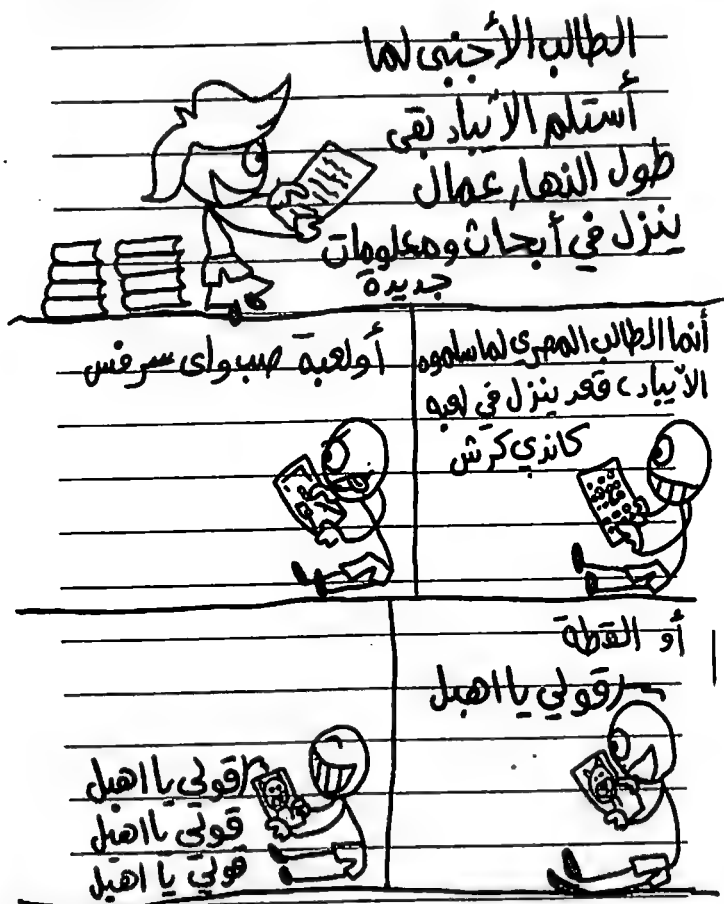 الطالب الأجنبي لما
أستلم الأيباد بقى
طول النهار عمال
ينزل في أبحاث ومعلومات
جديدة
أنما الطالب المصري لما سلموه
الأيباد، قعد ينزل في لعبه
كاندي كرش
أو لعبة صب واى سرفس
أو القطة
قولي يا اهبل
قولي يا اهبل
قولي يا اهبل
قولي يا اهبل